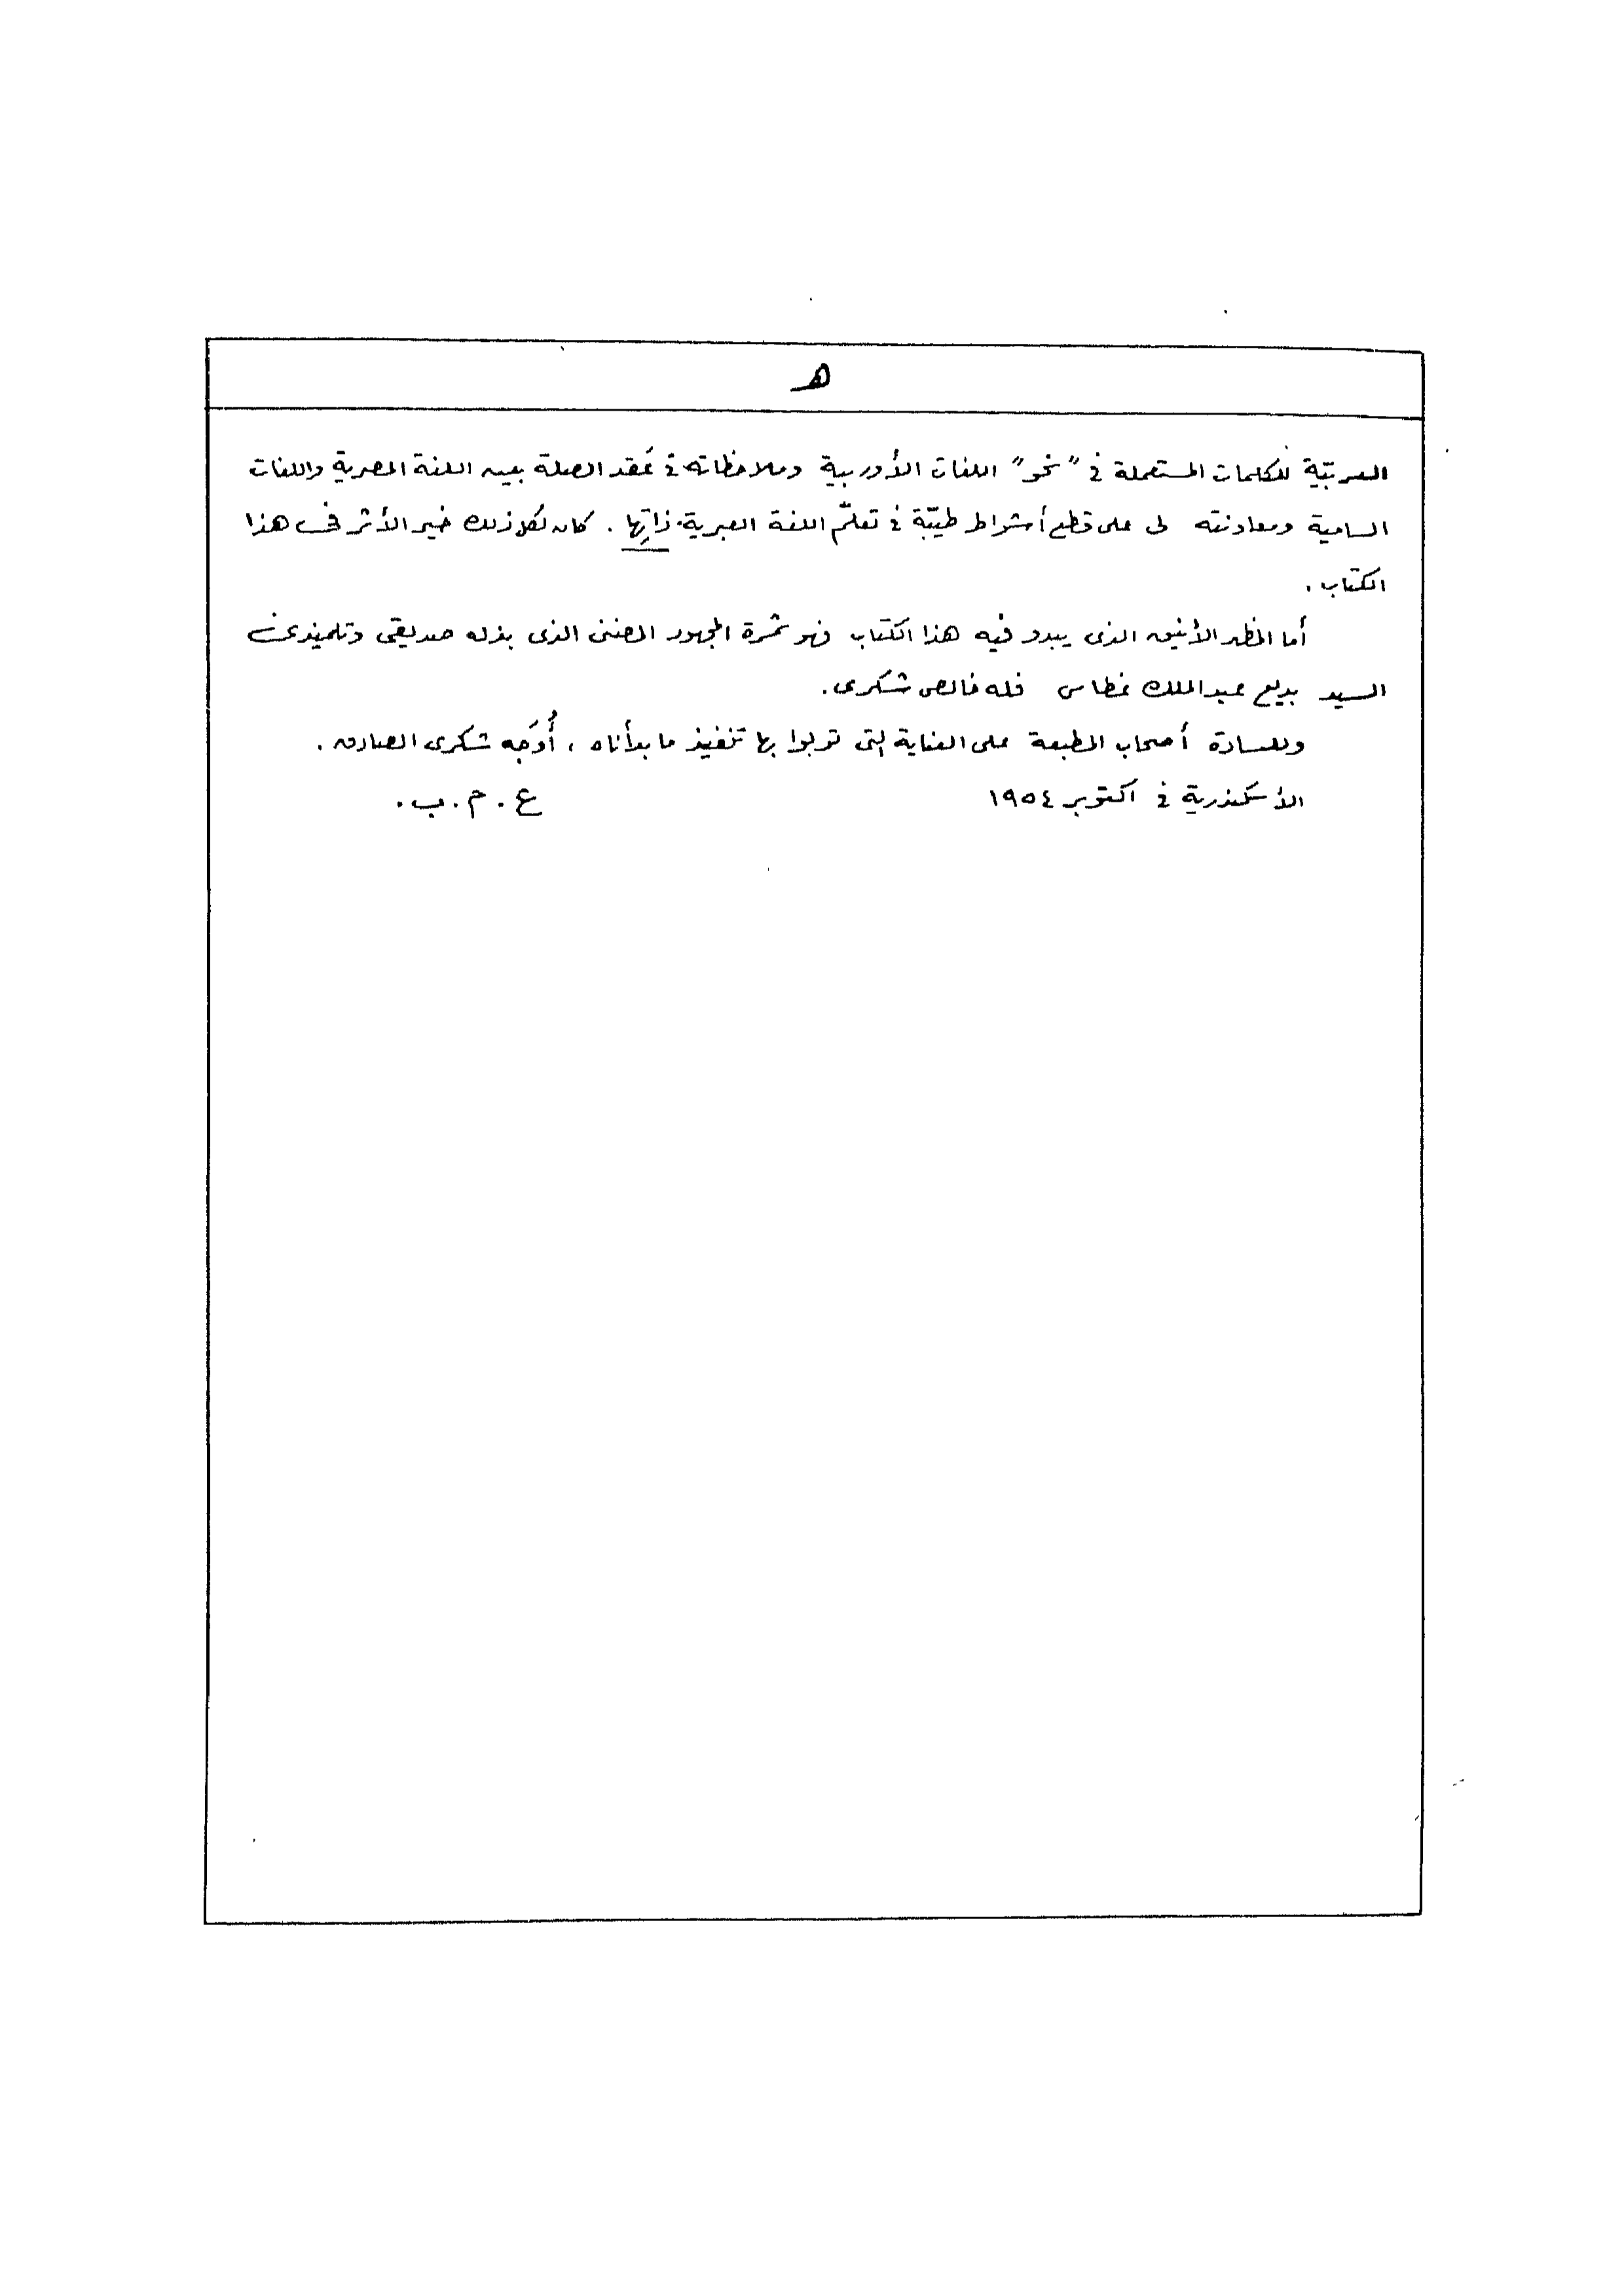 هـ
العربيّة للكلمات المستعملة فى "نحو" اللغات الأوربية وملاحظاته فى عَقد الصلة بين اللغة المصرية واللغات
السامية ومعاونته لى على قطع أشواط طيّبة فى تعلّم اللغة العبرية ذاتِها . كان لكل ذلك خير الأثر فى هذا
الكتاب .
أما المظهر الأنيق الذى يبدو فيه هذا الكتاب فهو ثمرة المجهود المضنى الذى بذله صديقى وتلميذى
السيد بديع عبد الملك غطاس فله خالص شكرى .
وللسادة أصحاب المطبعة على العناية التى تولوا بها تنفيذ ما بدأناه ، أُوَجِه شكرى الصادق .
الأسكندرية فى اكتوبر ١٩٥٤ ع . م . ب .